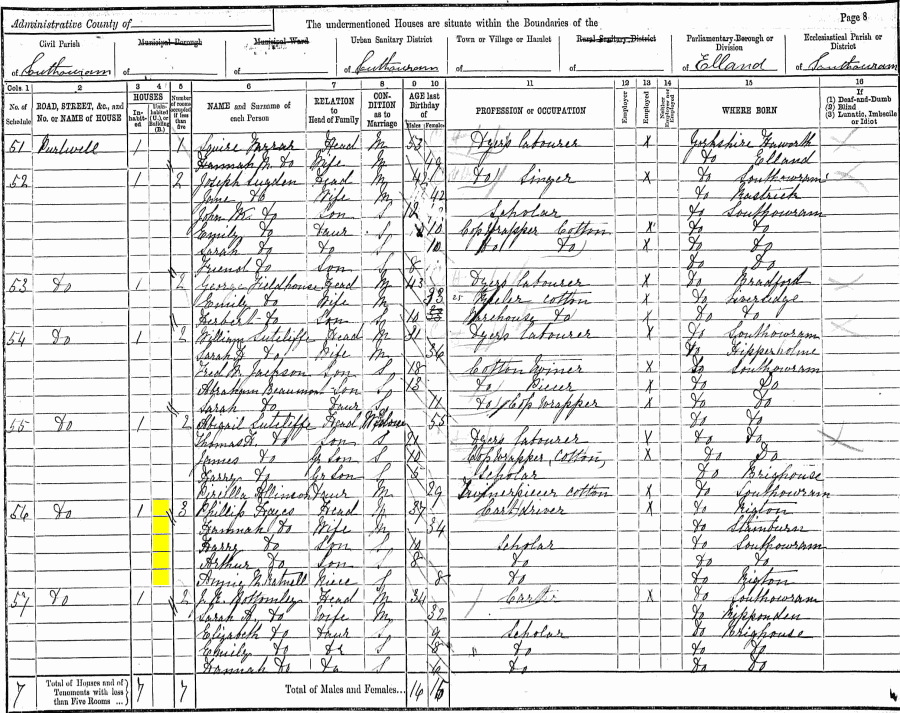 Administrative County of
The undermentioned Houses are situate within the Boundaries of the
Page 8
Civil Parish
of Southowram
Municipal Borough
of
Municipal Ward
of
Urban Sanitary District
of Southowram
Town or Village or Hamlet
of
Rural Sanitary District
of
Parliamentary Borough or Division
of Elland
Ecclesiastical Parish or District
of Southowram
Cols. 1 2 3 4 5 6 7 8 9 10 11 12 13 14 15 16
No. of Schedule
ROAD, STREET, &c., and No. or NAME of HOUSE
HOUSES
Inhabited
Uninhabited (U.) or Building (B.)
Number of rooms occupied if less than five
NAME and Surname of each Person
RELATION to Head of Family
CONDITION as to Marriage
AGE last Birthday of
Males
Females
PROFESSION or OCCUPATION
Employer
Employed
Neither Employer nor Employed
WHERE BORN
If (1) Deaf-and-Dumb (2) Blind (3) Lunatic, Imbecile or Idiot
51 Purlwell 1 1 Squire Head M 53 Dyer's labourer X Yorkshire Haworth
Hannah M. Do Wife M 49 Do Elland
52 1 2 Joseph Sugden Head M Do Singer X Do Southowram
Jane Do Wife M 42 Do Rastrick
John Wm Do Son S 12 Scholar Do Southowram
Emily Do Daur S 10 Cop Wrapper Cotton X Do Do
Sarah Do Do 10 Do Do X Do Do
Friend Do Son S 8 Do Do
53 Do 1 2 George Fieldhouse Head M 43 Dyers labourer X Do Bradford
Emily Do Wife M 33 Reeler Cotton X Do Liversedge
Herbert Do Son S 10 Warehouse Do X Do Do
54 Do 1 2 William Sutcliffe Head M 31 Dyers labourer X Do Southowram
Sarah Do Wife M 36 Do Hipperholme
Fred W. Jackson Son S 18 Cotton Twiner X Do Southowram
Abraham Beaumont Son S 13 Do Piecer X Do Do
Sarah Do Daur S 11 Do Cop Wrapper X Do Do
55 Do 1 2 Abigail Sutcliffe Head Widow 55 Do Do
Thomas H. Do Son S 21 Dyers labourer X Do Do
James Do Gr Son S 10 Cop Wrapper, Cotton, X Do Do
Harry Do Gr Son S 5 Scholar Do Brighouse
Allinson Daur M 29 Twiner piecer cotton X Do Southowram
56 Do 1 3 Phillip Hayes Head M 37 Cart driver X Do Rigton
Hannah Do Wife M 34 Do Stainburn
Harry Do Son 10 Scholar Do Southowram
Arthur Do Son S 8 Do Do Do
Annie Niece S 8 Do Do Rigton
57 Do 1 2 J. Bottomley Head M 34 X Do Southowram
Sarah A. Do Wife M 32 Do Ripponden
Elizabeth Do Daur 9 Scholar Do Brighouse
Emily Do Do S 8 Do Do Do
Hannah Do Do S 6 Do Do Do
7 Total of Houses and of Tenements with less than Five Rooms ... 7 7 Total of Males and Females... 16 15